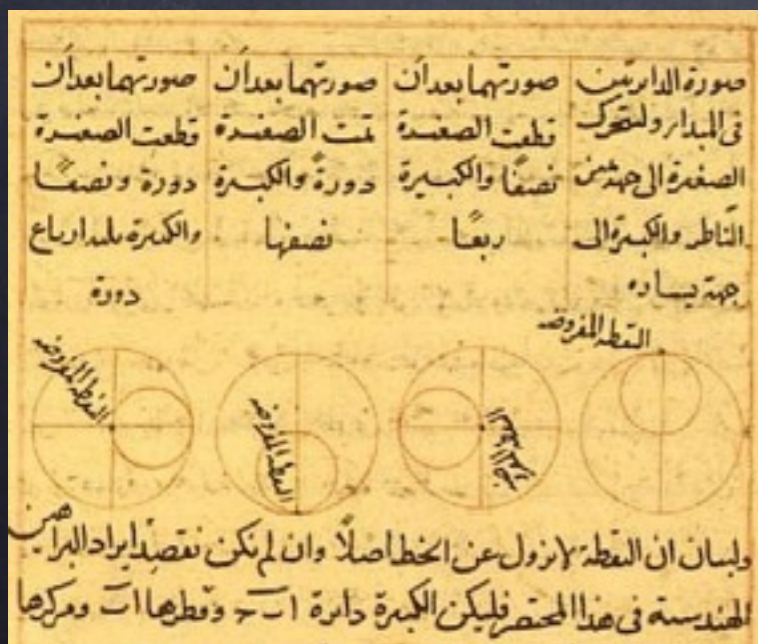 صورة الدائرتين
فى المبدا ولتتحرك
الصغيرة الى جهة يمين
الناظر والكبيرة الى
جهة يساره
صورتهما بعد ان
قطعت الصغيرة
نصفًا والكبيرة
ربعًا
صورتهما بعد ان
تمت الصغيرة
دورةً والكبيرة
نصفها
صورتهما بعد ان
قطعت الصغيرة
دورة ونصفًا
والكبيرة ثلثة ارباع
دورة
النقطة المفروضة
النقطة المفروضة
النقطة المفروضة
ولبيان ان النقطة لا تزول عن الخط اصلًا وان لم نكن نقصد ايراد البراهين
الهندسية فى هذا المختصر فليكن الكبيرة دائرة ا ب ح وقطرها ا ب ومركزها